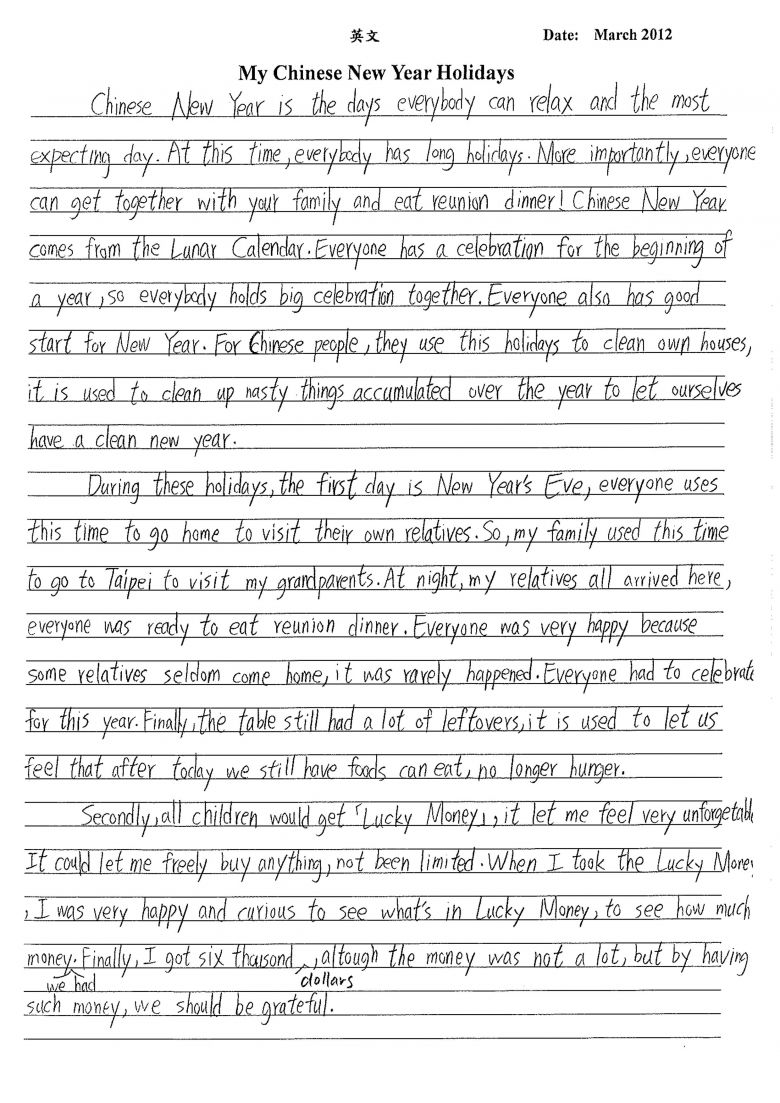 英文
Date: March 2012
My Chinese New Year Holidays
Chinese New Year is the days everybody can relax and the most
expecting day. At this time, everybody has long holidays. More importantly, everyone
can get together with your family and eat reunion dinner! Chinese New Year
comes from the Lunar Calendar. Everyone has a celebration for the beginning of
a year, so everybody holds big celebration together. Everyone also has good
start for New Year. For Chinese people, they use this holidays to clean own houses,
it is used to clean up nasty things accumulated over the year to let ourselves
have a clean new year.
During these holidays, the first day is New Year's Eve, everyone uses
this time to go home to visit their own relatives. So, my family used this time
to go to Taipei to visit my grandparents. At night, my relatives all arrived here,
everyone was ready to eat reunion dinner. Everyone was very happy because
some relatives seldom come home, it was rarely happened. Everyone had to celebrate
for this year. Finally, the table still had a lot of leftovers, it is used to let us
feel that after today we still have foods can eat, no longer hunger.
Secondly, all children would get 「Lucky Money」, it let me feel very unforgetabl
It could let me freely buy anything, not been limited. When I took the Lucky Mone
, I was very happy and curious to see what's in Lucky Money, to see how much
money. Finally, I got six thousond , altough the money was not a lot, but by having
we had dollars
such money, we should be grateful.